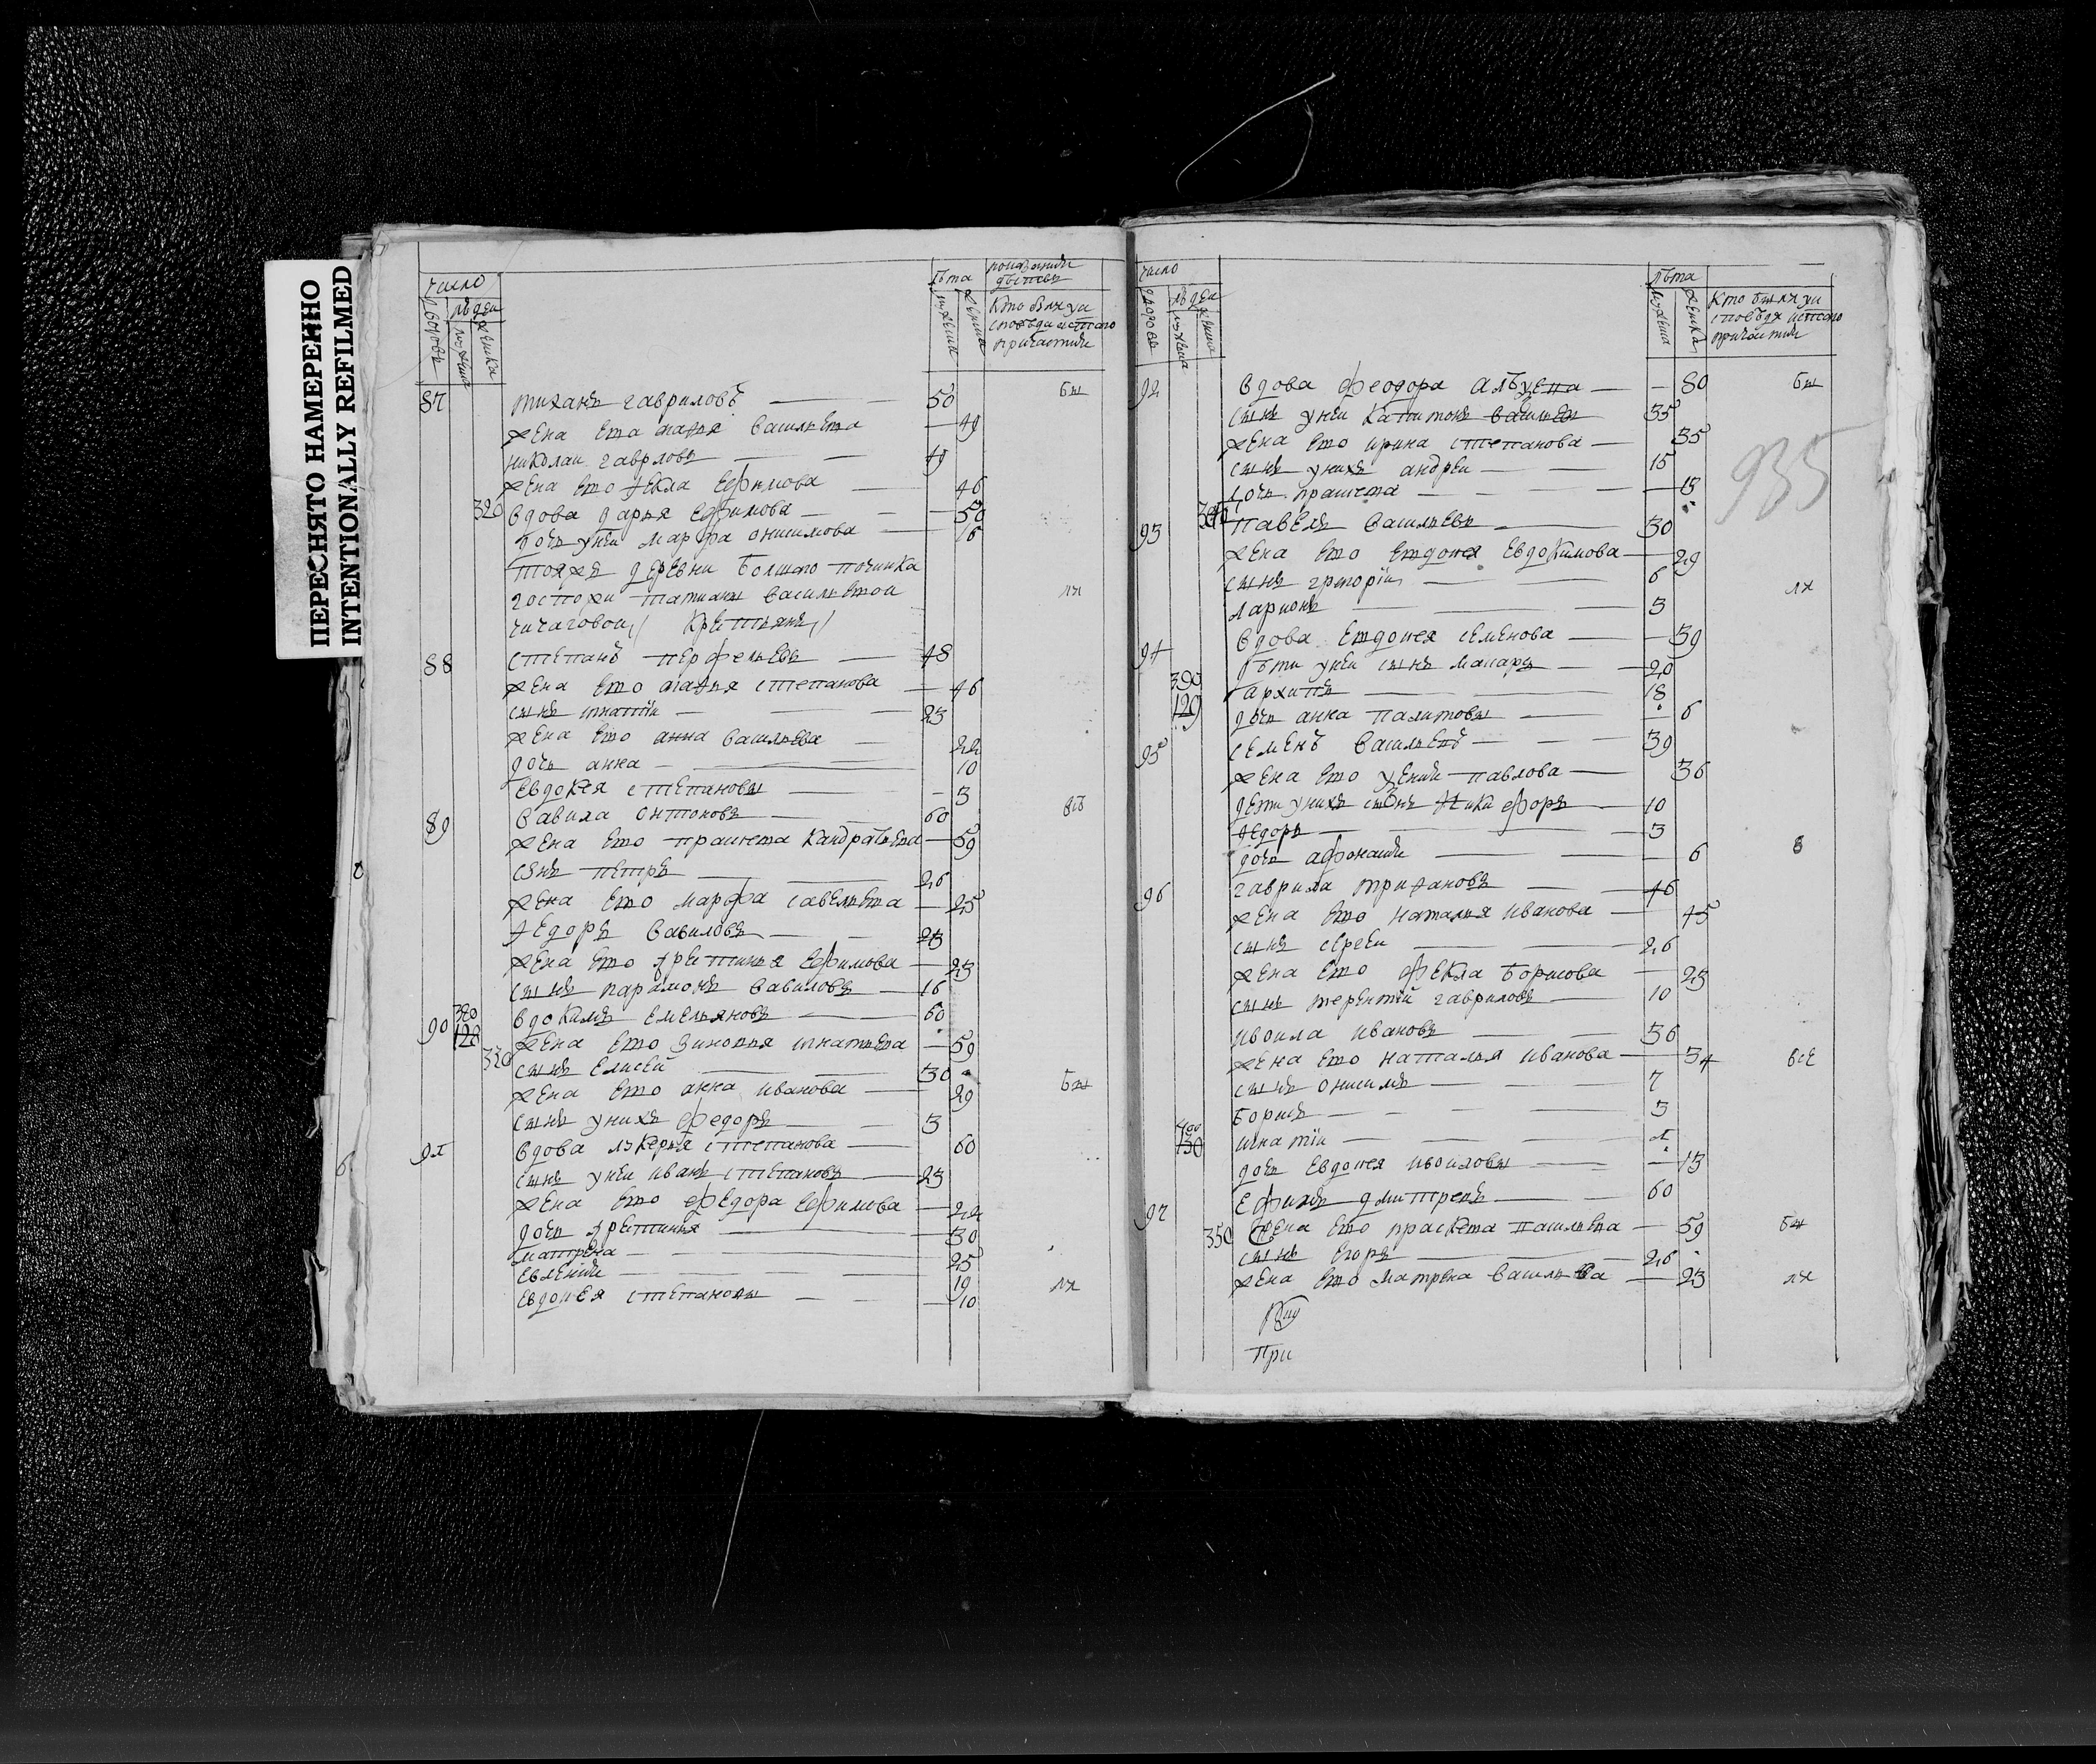 ПЕРЕСНЯТО НАМЕРЕННО
INTENTIONALLY REFILMED
число
лѣта
дворовъ
людеи
мужеска
женска
мужеска
женска
кто былъ у и
споведи исвтаго
причастия
87 гавриловъ 50 бы
жена ево марья васильева 49
николаи гаврловъ 49
жена ево фекла ефимова 46
320 вдова дарья ефимова 50
дочь унеи марфа онисимова 16
тояжъ деревни болшаго починка
госпожи татианы васильевои
чичаговои крестьянъ лъ
88 степанъ перфельевъ 48
жена ево марья степанова 46
сынъ игнатіи 23
жена ево анна васильева 22
дочь анна 10
евдокея степановы 3
89 вавила онтоновъ 60 всѣ
жена ево прасковя кандратьева 59
сынъ петръ 26
жена ево марфа савельева 25
федоръ вавиловъ 23
жена ево ефимова 23
сынъ парамонъ вавиловъ 16
90 вдокимъ емельяновъ 60
жена ево зиновья игнатьева 59
330 сынъ елисеи 30
жена ево анна иванова 29 бы
сынъ унихъ федоръ 3
91 вдова лукерья степанова 60
сынъ унеи иванъ степановъ 23
жена ево федора ефимова 22
дочь 30
матрена 25
19
евдокея степановы 10 лъ
число
лѣта
дворовъ
людеи
мужеска
женска
мужеска
женска
кто былъ у и
споведя исвтаго
причастия
935
92 вдова феодора 80 бы
сынъ унеи капитонъ васильевъ 35
жена ево ирина степанова 35
сынъ унихъ андреи 15
дочь 13
93 павелъ васильевъ 30
жена ево евдокея евдокимова 29
сынъ григоріи 6 лъ
ларионъ 3
94 вдова евдокея семенова 59
дѣти унеи сынъ макаръ 20
архипъ 18
дочь анна 6
95 семенъ васильевъ 39
жена ево павлова 36
дети унихъ сынъ никифоръ 10
федоръ 3
дочь афонасия 6 в
96 гаврила трифановъ 46
жена ево наталья иванова 45
сынъ 26
жена ево фекла борисова 23
сынъ терентіи гавриловъ 10
ивоила ивановъ 36
жена ево наталья иванова 34 все
сынъ онисимъ 7
борисъ 3
400
130 игнатіи 1
дочь евдокея ивоиловы 13
97 ефимъ дмитреевъ 60
350 жена ево васильева 59 бы
сынъ егоръ 26
жена ево матрена васильева 23 лъ
При